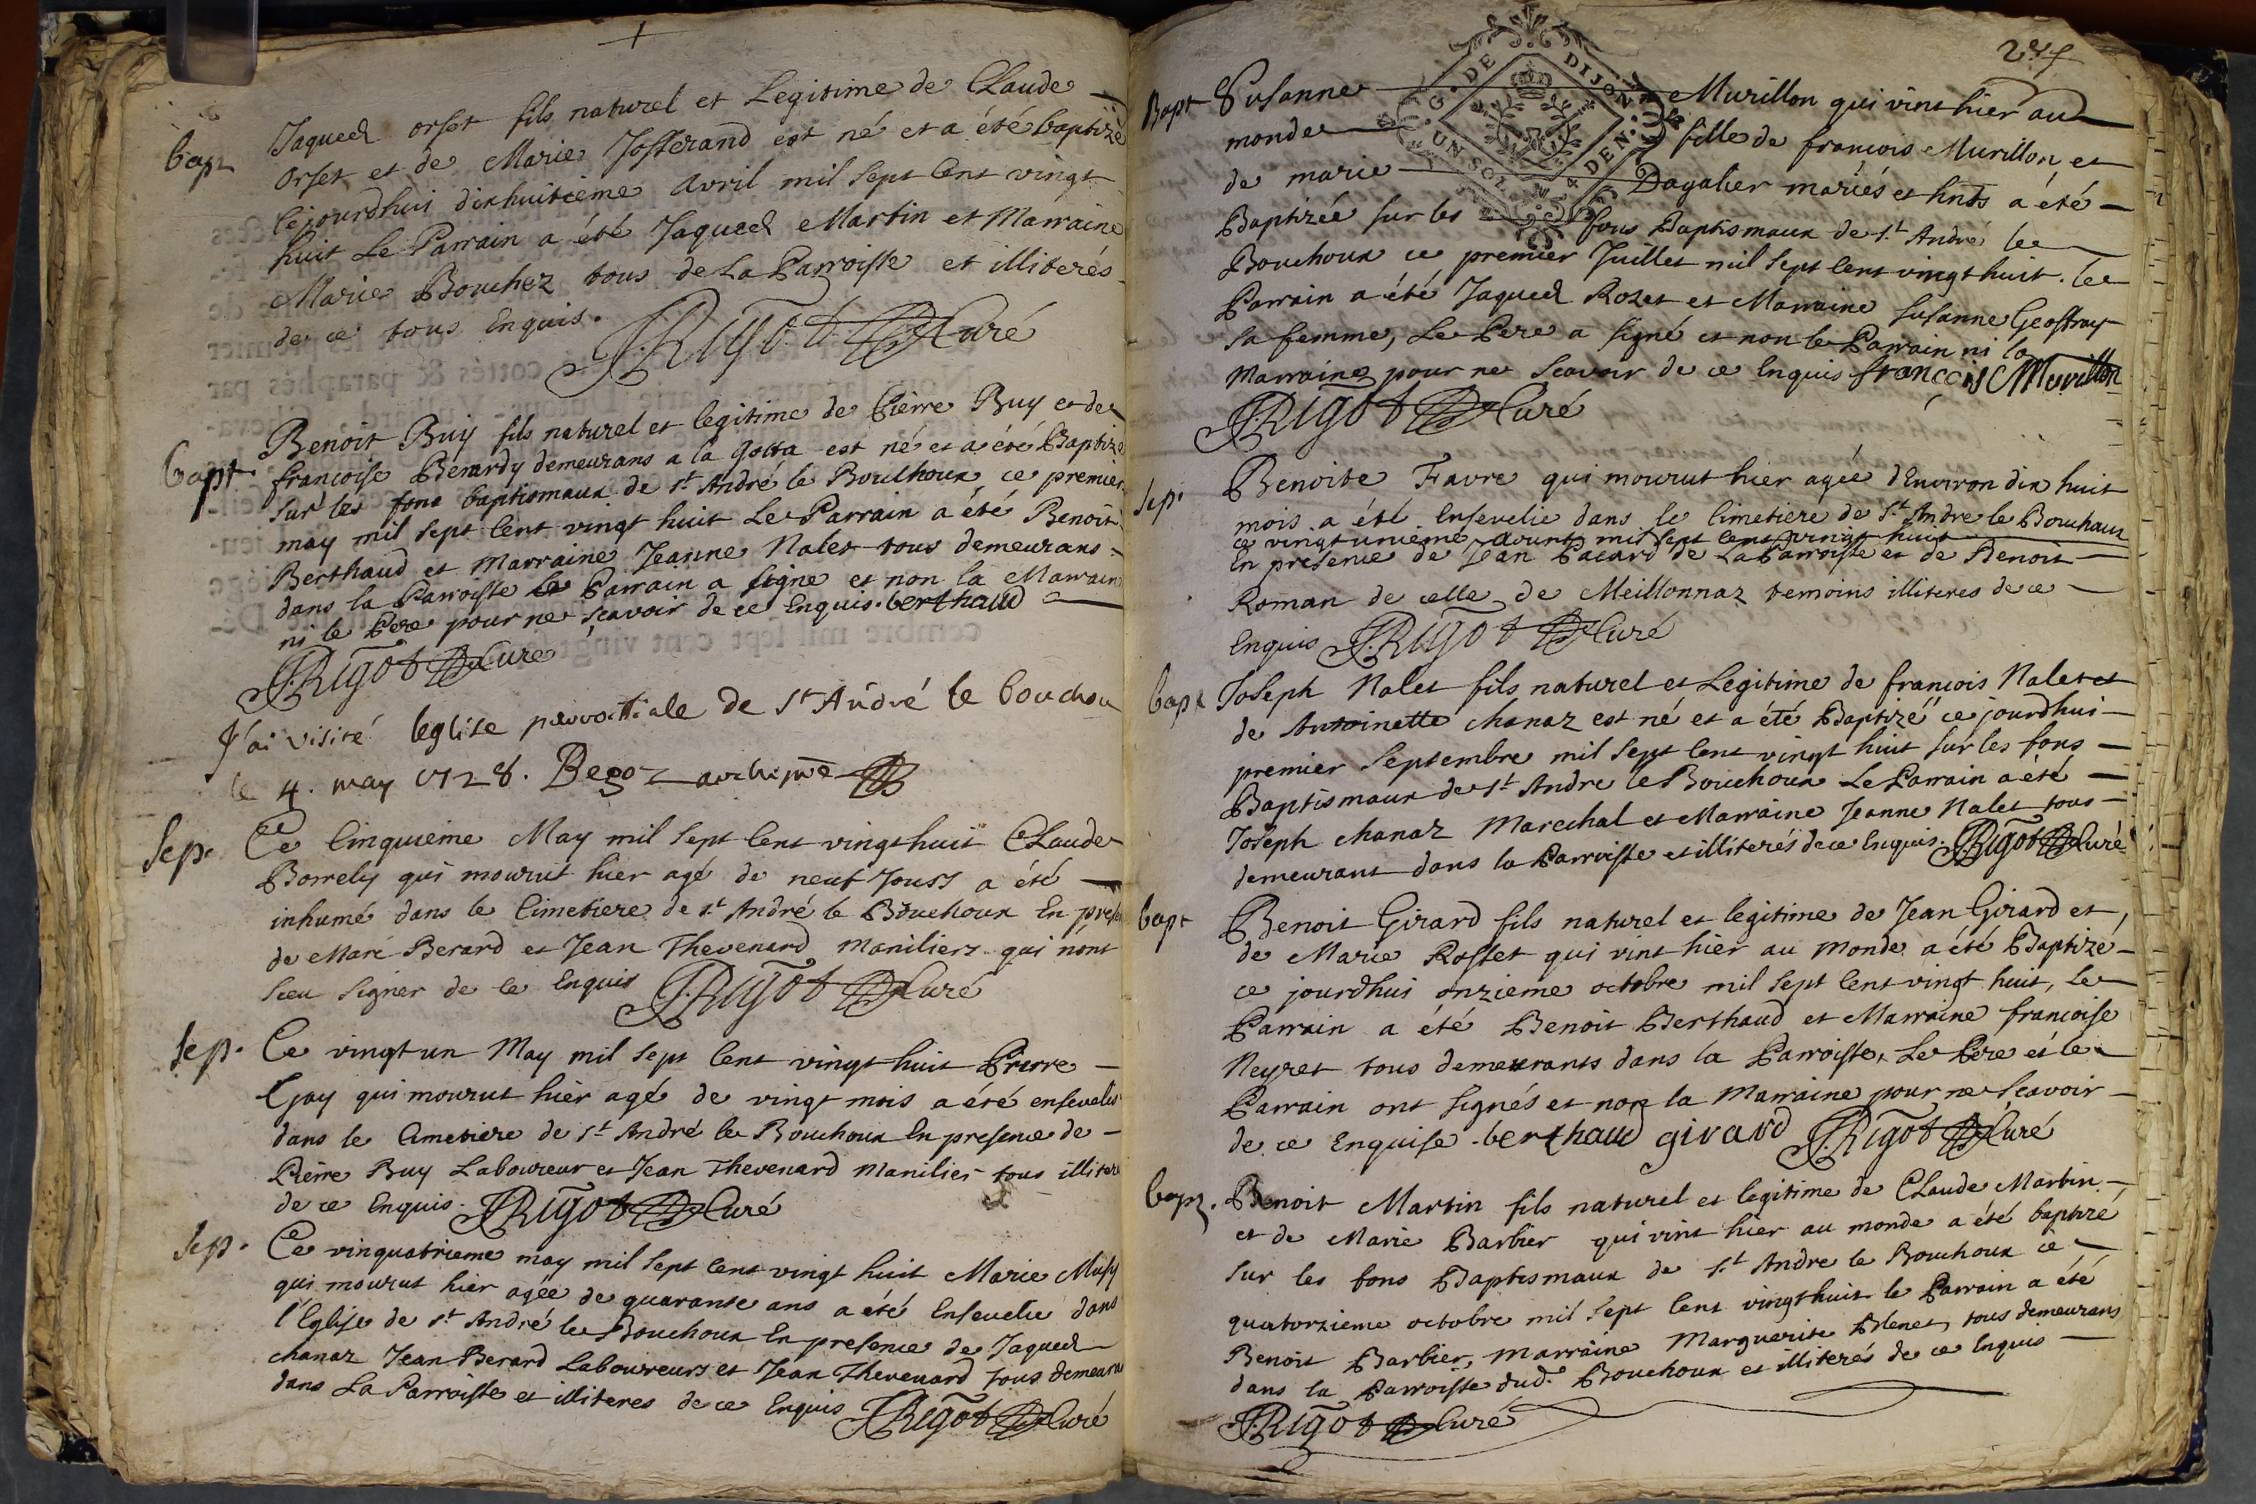 bapt
Jaques orset fils naturel et Legitime de Claude
orset et de Marie Josserand est né et a été baptizé
cejourdhuis dixhuitieme avril mil sept Cent vingt
huit Le Parrain a été Jaques Martin et Marraine
Marie Bouchez tous de La Parroisse et illiterés
de ce tous Enquis.
J. Rigot Curé
bapt.
Benoit Buy fils naturel et legitime de Pierre Buy et de
françoise Berardy demeurans a la gotta est né et a été Baptizé
sur les fons baptismaux de st André le Bouchoux ce premier
may mil sept Cent vingt huit Le Parrain a été Benoit
Berthaud et Marraine Jeanne Nalet tous demeurans
dans la Parroisse le Parrain a signé et non la Marraine
ni le Pere pour ne sçavoir de ce Enquis. berthaud
J. Rigot Curé
J'ai visité leglise parroissiale de st André le bouchou
le 4. may 1728. Begoz archiptre
Sep.
Ce Cinquieme May mil sept Cent vingthuit Claude
Borrely qui mourut hier agé de neuf Jours a été
inhumé dans le Cimetiere de st André le Bouchoux En presen
de Marc Berard et Jean Thevenard Maniliers qui n'ont
sceu signer de ce Enquis J. Rigot Curé
Sep.
Ce vingtun May mil sept Cent vingt huit Pierre
Gay qui mourut hier agé de vingt mois a été enseveli
dans le Cimetiere de st André le Bouchoux En presence de
Pierre Buy Laboureur et Jean Thevenard Manilier tous illiteré
de ce Enquis. J. Rigot Curé
Sep.
Ce vinquatrieme may mil sept Cent vingt huit Marie
qui mourut hier agée de quarante ans a été Ensevelie dans
l'Eglise de st André le Bouchoux En presence de Jaques
chanaz Jean Berard Laboureurs et Jean Thevenard tous demeura
dans La Parroisse et illiteres de ce Enquis J. Rigot Curé
G. DE DIJON
UN SOL 4 DEN.
Bapt
Susanne Murillon qui vint hier au
monde fille de francois Murillon et
de marie Dagalier mariés et hnts a été
Baptizée sur les fons Baptismaux de st André le
Bouchoux ce premier Juillet mil sept Cent vingt huit. le
Parrain a été Jaques Rozet et Marraine Susanne Geoffray
sa femme, Le Pere a signé et non le Parrain ni la
Marraine pour ne sçavoir de ce Enquis françois Murillon
J. Rigot Curé
Sep.
Benoite Favre qui mourut hier agée d'Environ dix huit
mois a été Ensevelie dans le Cimetiere de st André le Bouchoux
ce vingtunieme mil sept cent vingt huit
En presence de Jean Pacard de La Parroisse et de Benoit
Roman de celle de Meillonnaz temoins illiteres de ce
Enquis J. Rigot Curé
bapt
Joseph Nalet fils naturel et Legitime de francois Nalet et
de Antoinette chanaz est né et a été Baptizé ce jourdhui
premier septembre mil sept Cent vingt huit sur les fons
Baptismaux de st André le Bouchoux Le Parrain a été
Joseph chanaz Marechal et Marraine Jeanne Nalet tous
demeurant dans la Parroisse et illiterés de ce Enquis. J. Rigot Curé
bapt
Benoit Girard fils naturel et legitime de Jean Girard et
de Marie Rosset qui vint hier au monde a été Baptizé
ce jourdhui onzieme octobre mil sept Cent vingt huit, Le
Parrain a été Benoit Berthaud et Marraine françoise
Neyret tous demeurants dans la Parroisse, Le Pere et le
Parrain ont signés et non la Marraine pour ne sçavoir
de ce Enquise. berthaud girard J. Rigot Curé
bapt.
Benoit Martin fils naturel et legitime de Claude Martin
et de Marie Barbier qui vint hier au monde a été baptizé
sur les fons Baptismaux de st André le Bouchoux ce
quatorzieme octobre mil sept Cent vingthuit le Parrain a été
Benoit Barbier, Marraine Marguerite Blenet, tous demeurans
dans la Parroisse dud. Bouchoux et illiterés de ce Enquis
J. Rigot Curé